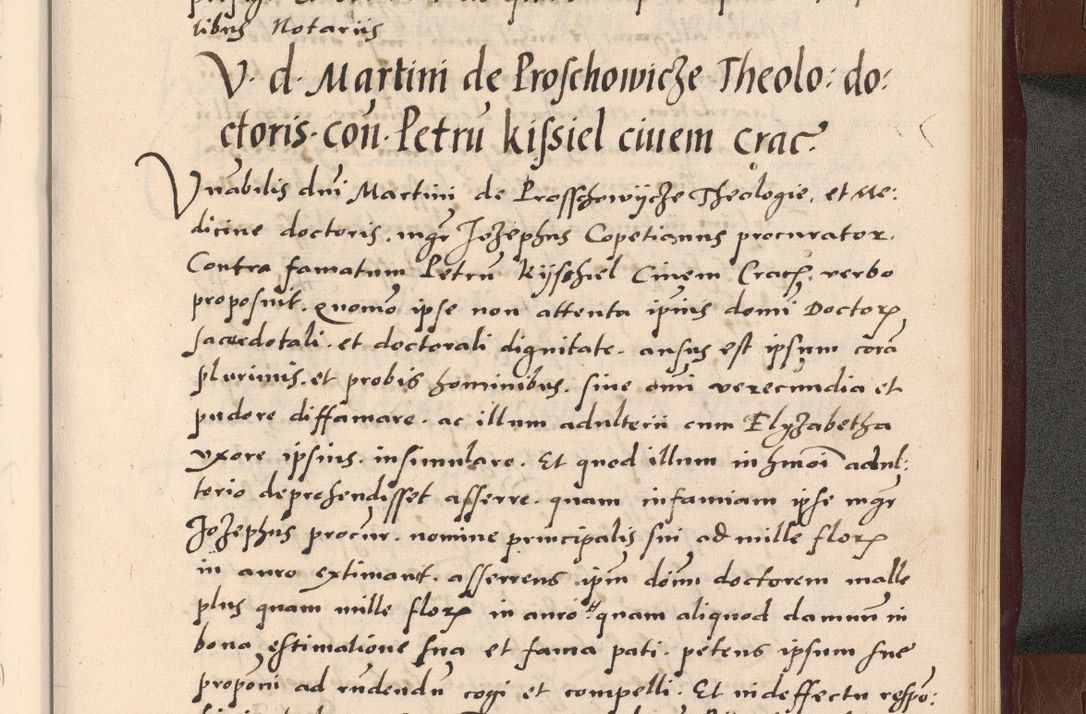 tibus Notariis
V. d. Martini de Proschowicze Theolo: do:
ctoris. con. Petrū kissiel ciuem crac̄
Vnābilis dn̄i Martini de Prosschowÿcze Theologie, et Me:
dicine doctoris. mgr̄ Jozephus Copetianus procurator.
Contra famatum Petrū Kÿschiel Ciuem Crac̄. verbo
proposuit. quomō ipse non attenta ipīus domī Doctorꝭ
sacerdotali. et doctorali dignitate. ausus est ipsum corā
plurimis. et probis hominibus. sine om̄i verecundia et
pudore diffamare. ac illum adulterii cum Elyzabetha
vxore ipsius. insimulare. Et quod illum in hmōi adul:
terio deprehendisset asserre. quam infamiam ipse mgr̄
Jozephus procur. nomine principalis sui ad mille florꝭ
in auro extimauit. asserens ip̄m dōm doctorem malle
plus quam mille florꝭ in auro quam aliquod damnū in
bona estimatione sua et fama pati. petens ipsum sue
propōni ad rūdendū cogi et compelli. Et in deffectu respo: